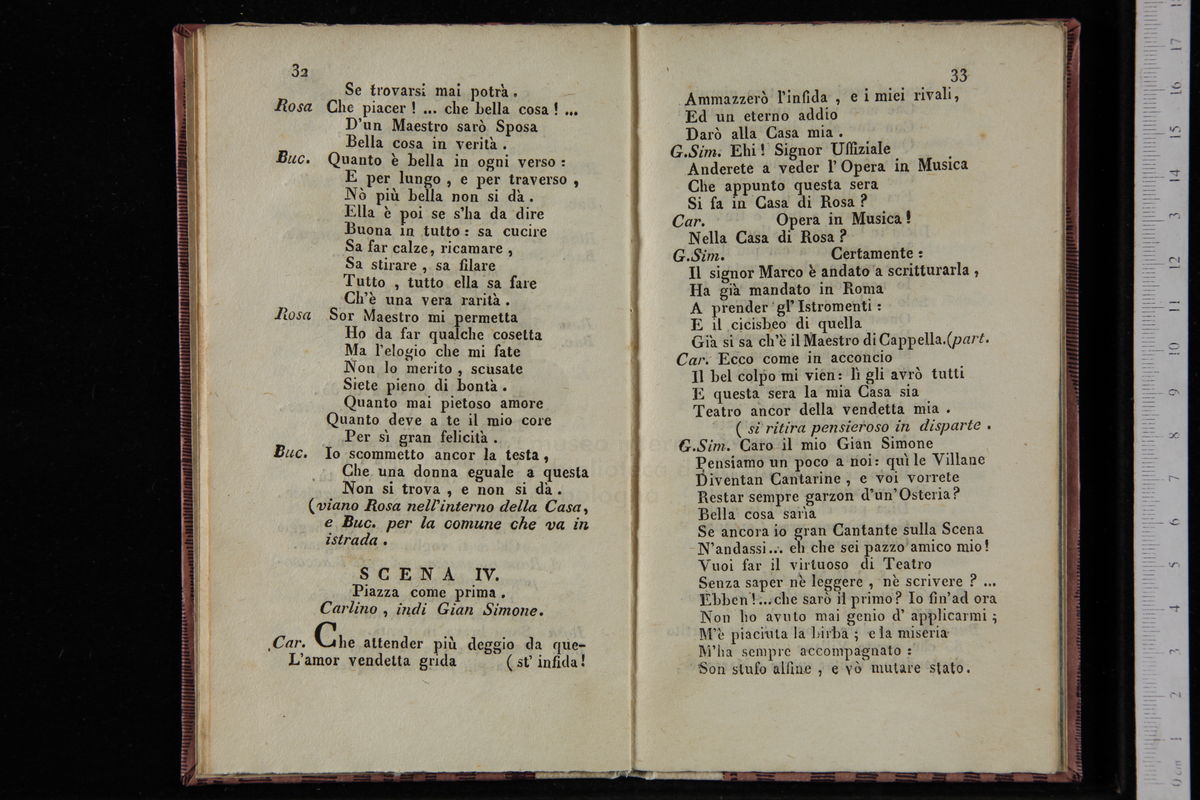 32
Se trovarsi mai potrà .
Rosa Che piacer ! ... che bella cosa ! ...
D'un Maestro sarò Sposa
Bella cosa in verità .
Buc. Quanto è bella in ogni verso :
E per lungo , e per traverso ,
Nò più bella non si dà .
Ella è poi se s'ha da dire
Buona in tutto : sa cucire
Sa far calze, ricamare ,
Sa stirare , sa filare
Tutto , tutto ella sa fare
Ch'è una vera rarità .
Rosa Sor Maestro mi permetta
Ho da far qualche cosetta
Ma l'elogio che mi fate
Non lo merito , scusate
Siete pieno di bontà .
Quanto mai pietoso amore
Quanto deve a te il mio core
Per sì gran felicità .
Buc. Io scommetto ancor la testa ,
Che una donna eguale a questa
Non si trova , e non si dà .
(viano Rosa nell'interno della Casa,
e Buc. per la comune che va in
istrada .
SCENA IV.
Piazza come prima .
Carlino , indi Gian Simone.
Car. Che attender più deggio da que-
L'amor vendetta grida ( st' infida!
33
Ammazzerò l'infida , e i miei rivali,
Ed un eterno addio
Darò alla Casa mia .
G.Sim. Ehi! Signor Uffiziale
Anderete a veder l' Opera in Musica
Che appunto questa sera
Si fa in Casa di Rosa ?
Car. Opera in Musica !
Nella Casa di Rosa ?
G.Sim. Certamente :
Il signor Marco è andato a scritturarla ,
Ha già mandato in Roma
A prender gl' Istromenti :
E il cicisbeo di quella
Già si sa ch'è il Maestro di Cappella.(part.
Car. Ecco come in acconcio
Il bel colpo mi vien: lì gli avrò tutti
E questa sera la mia Casa sia
Teatro ancor della vendetta mia .
( si ritira pensieroso in disparte .
G.Sim. Caro il mio Gian Simone
Pensiamo un poco a noi: quì le Villane
Diventan Cantarine , e voi vorrete
Restar sempre garzon d'un'Osteria?
Bella cosa sarìa
Se ancora io gran Cantante sulla Scena
N'andassi... eh che sei pazzo amico mio!
Vuoi far il virtuoso di Teatro
Senza saper nè leggere , nè scrivere ? ...
Ebben!...che sarò il primo? Io fin'ad ora
Non ho avuto mai genio d' applicarmi ;
M'è piaciuta la birba ; e la miseria
M'ha sempre accompagnato :
Son stufo alfine , e vò mutare stato.